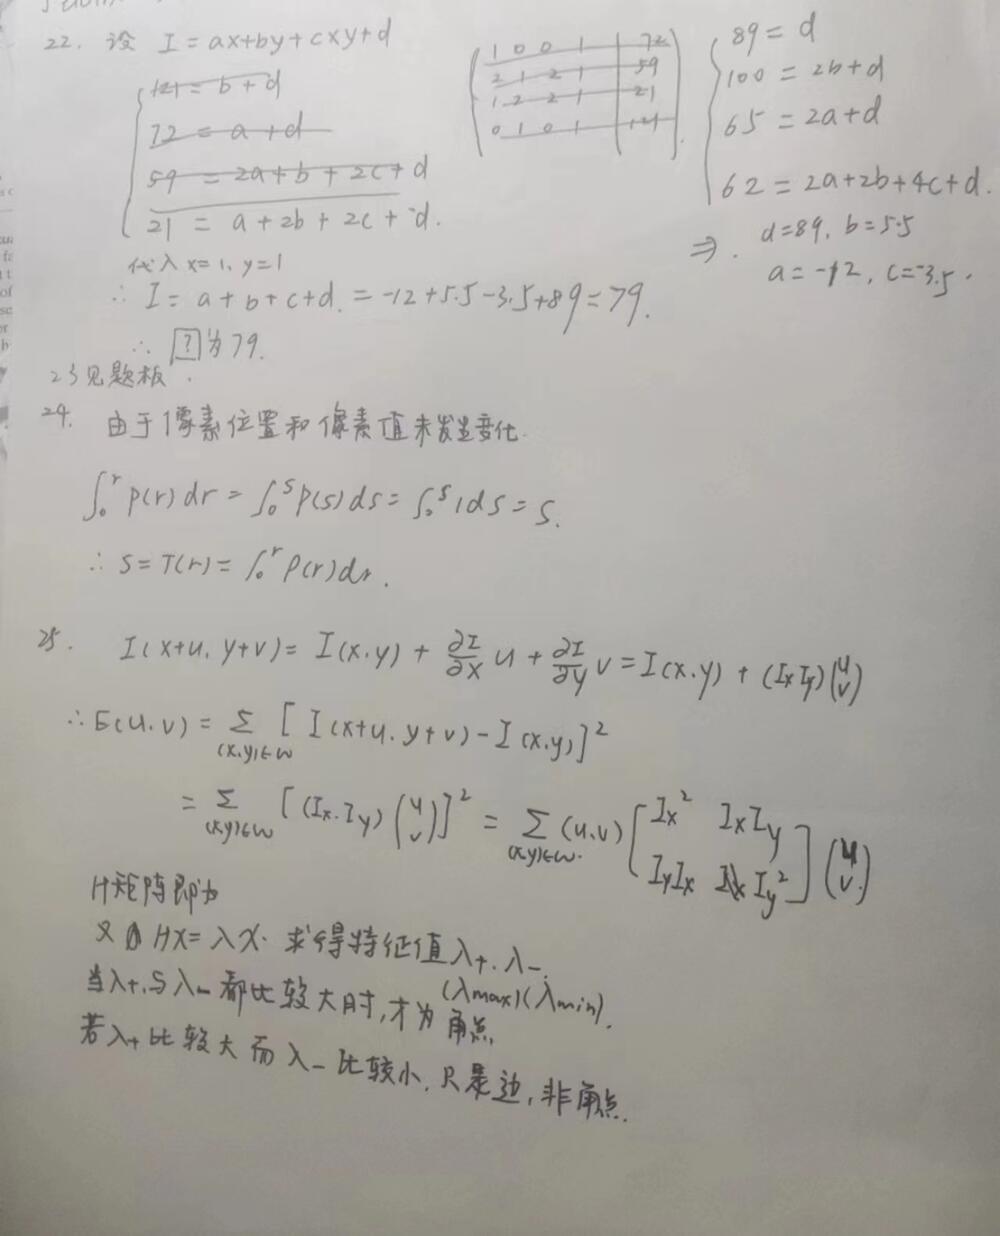 22. 设 I = ax+by+cxy+d
121 = b+d
72 = a+d
59 = 2a+b+2c+d
21 = a+2b+2c+d.
1 0 0 1 72
2 1 2 1 59
1 2 2 1 21
0 1 0 1 121
89 = d
100 = 2b+d
65 = 2a+d
62 = 2a+2b+4c+d.
⇒. d=89, b=5.5
a=-12, c=-3.5.
代入 x=1, y=1
∴ I = a+b+c+d. = -12+5.5-3.5+89=79.
∴ [?]为79.
23见题板.
24. 由于像素位置和像素值未发生变化.
∫₀ʳ p(r)dr = ∫₀ˢ p(s)ds = ∫₀ˢ 1ds = s.
∴ s=T(r)= ∫₀ʳ P(r)dr.
25. I(x+u, y+v) = I(x,y) + ∂I/∂x u + ∂I/∂y v = I(x,y) + (Ix Iy)(u v)
∴ E(u,v) = Σ (x,y)∈w [I(x+u, y+v) - I(x,y)]²
= Σ (x,y)∈w [(Ix, Iy)(u v)]² = Σ (x,y)∈w. (u,v) [Ix² IxIy
IyIx Iy²] (u v)
H矩阵即为
又 HX=λX. 求得特征值λ+. λ-.
(λmax)(λmin).
当λ+与λ-都比较大时,才为角点
若λ+比较大而λ-比较小,只是边,非角点.